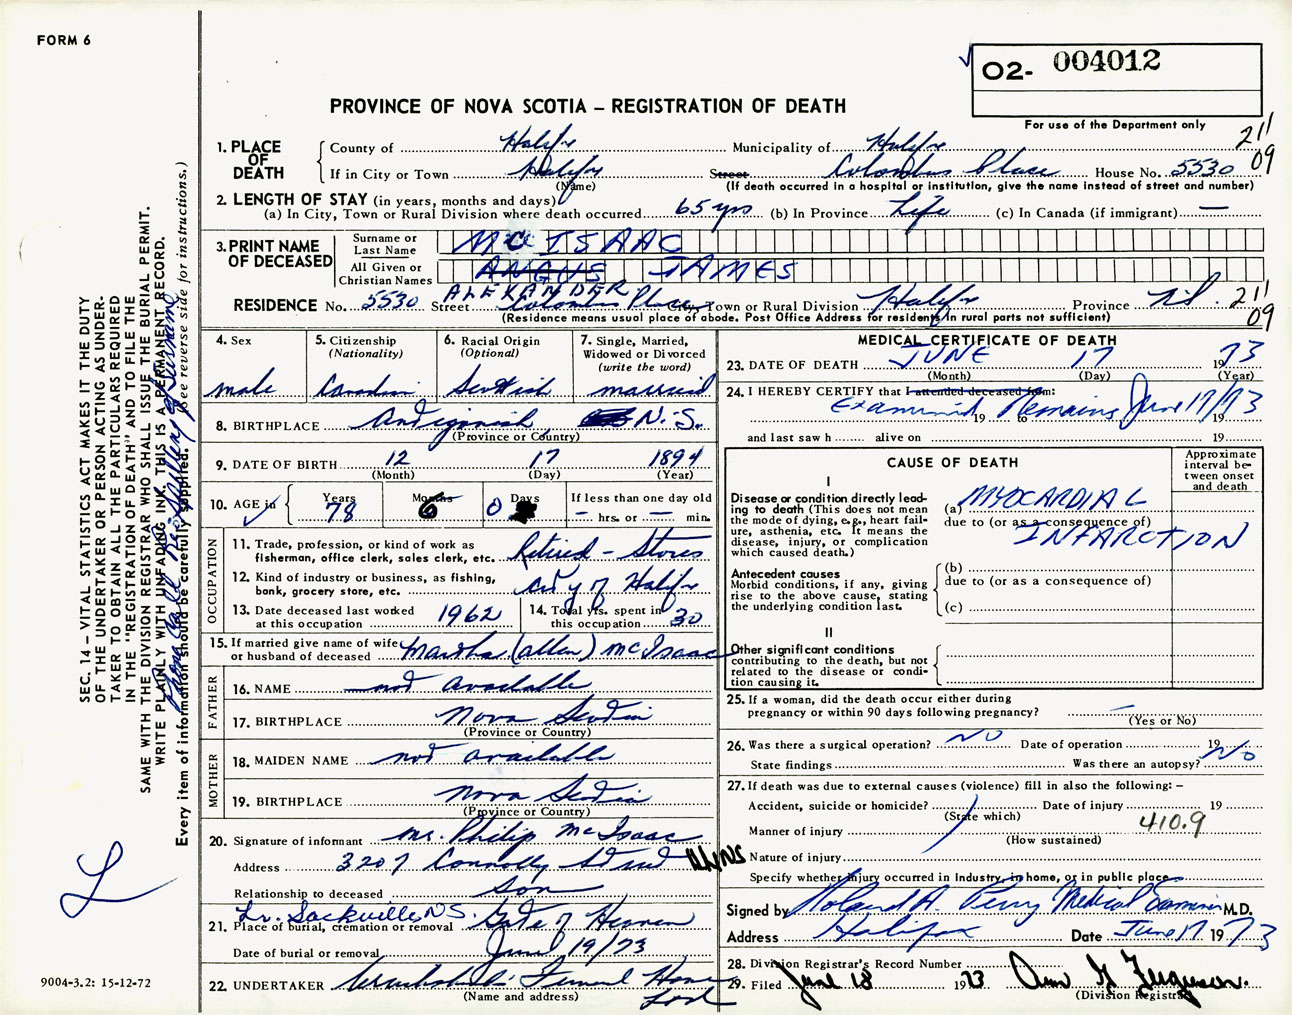 FORM 6
O2- 004012
PROVINCE OF NOVA SCOTIA – REGISTRATION OF DEATH
For use of the Department only
211
09
1. PLACE OF DEATH
County of Halifx Municipality of Halifx
If in City or Town Halifx Street Columbus Place House No. 5530
(Name) (If death occurred in a hospital or institution, give the name instead of street and number)
2. LENGTH OF STAY (in years, months and days)
(a) In City, Town or Rural Division where death occurred 65 yrs (b) In Province Life (c) In Canada (if immigrant) —
3. PRINT NAME OF DECEASED
Surname or Last Name McISAAC
All Given or Christian Names ANGUS JAMES
ALEXANDER
RESIDENCE No. 5530 Street Columbus Place City, Town or Rural Division Halifx Province N.S. 211
09
(Residence means usual place of abode. Post Office Address for residents in rural parts not sufficient)
4. Sex
male
5. Citizenship (Nationality)
Canadian
6. Racial Origin (Optional)
Scottish
7. Single, Married, Widowed or Divorced (write the word)
married
8. BIRTHPLACE Antigonish N.S.
(Province or Country)
9. DATE OF BIRTH 12 17 1894
(Month) (Day) (Year)
10. AGE in Years 78 Months 6 Days 0 If less than one day old
– hrs. or – min.
OCCUPATION
11. Trade, profession, or kind of work as fisherman, office clerk, sales clerk, etc. Retired – Stores
12. Kind of industry or business, as fishing, bank, grocery store, etc. City of Halifx
13. Date deceased last worked at this occupation 1962
14. Total yrs. spent in this occupation 30
15. If married give name of wife or husband of deceased Martha (Allen) McIsaac
FATHER
16. NAME not available
17. BIRTHPLACE Nova Scotia
(Province or Country)
MOTHER
18. MAIDEN NAME not available
19. BIRTHPLACE Nova Scotia
(Province or Country)
20. Signature of informant Mr. Philip McIsaac
Address 3207 Connolly Street Hfx NS
Relationship to deceased Son
Lr. Sackville N.S.
21. Place of burial, cremation or removal Gate of Heaven
Date of burial or removal June 19/73
22. UNDERTAKER Funeral Home
(Name and address)
MEDICAL CERTIFICATE OF DEATH
23. DATE OF DEATH JUNE 17 1973
(Month) (Day) (Year)
24. I HEREBY CERTIFY that I attended deceased from:
Examined Remains June 17/73
19 to 19
and last saw h alive on 19
CAUSE OF DEATH
Approximate interval between onset and death
I
Disease or condition directly leading to death (This does not mean the mode of dying, e.g., heart failure, asthenia, etc. It means the disease, injury, or complication which caused death.)
(a) MYOCARDIAL
due to (or as a consequence of)
INFARCTION
Antecedent causes
Morbid conditions, if any, giving rise to the above cause, stating the underlying condition last.
(b)
due to (or as a consequence of)
(c)
II
Other significant conditions contributing to the death, but not related to the disease or condition causing it.
25. If a woman, did the death occur either during pregnancy or within 90 days following pregnancy? –
(Yes or No)
26. Was there a surgical operation? NO Date of operation 19
State findings Was there an autopsy? No
27. If death was due to external causes (violence) fill in also the following: –
Accident, suicide or homicide? Date of injury 19
(State which)
Manner of injury 410.9
(How sustained)
Nature of injury
Specify whether injury occurred in industry, in home, or in public place
Signed by Roland A. Perry Medical Examiner M.D.
Address Halifax Date June 17 1973
28. Division Registrar's Record Number
29. Filed June 18 1973 Ann G Ferguson.
(Division Registrar)
SEC. 14 – VITAL STATISTICS ACT MAKES IT THE DUTY
OF THE UNDERTAKER OR PERSON ACTING AS UNDERTAKER TO OBTAIN ALL THE PARTICULARS REQUIRED
IN THE "REGISTRATION OF DEATH" AND TO FILE THE
SAME WITH THE DIVISION REGISTRAR WHO SHALL ISSUE THE BURIAL PERMIT.
WRITE PLAINLY WITH UNFADING INK. THIS IS A PERMANENT RECORD.
Every item of information should be carefully supplied. (See reverse side for instructions.)
L
9004-3.2: 15-12-72